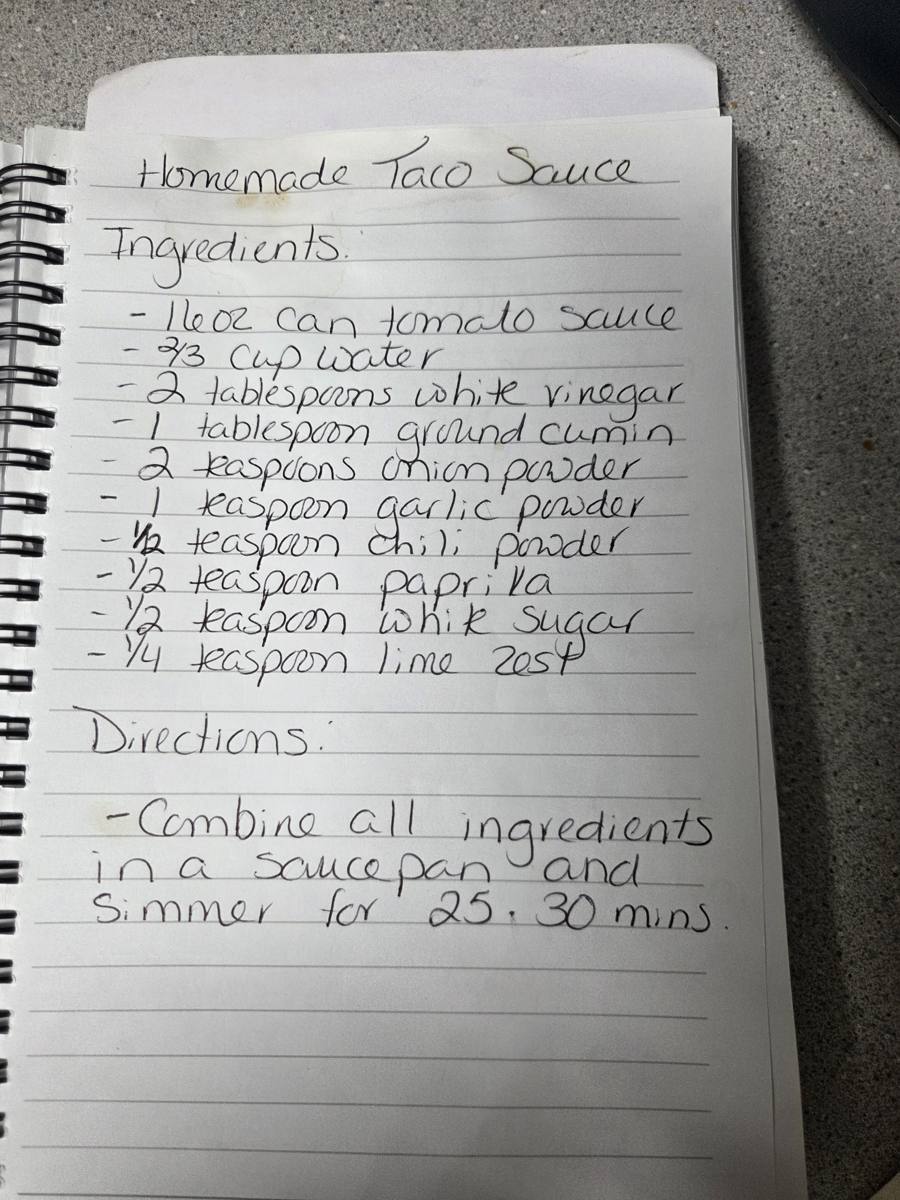 Homemade Taco Sauce
Ingredients:
- 16oz can tomato sauce
- 2/3 cup water
- 2 tablespoons white vinegar
- 1 tablespoon ground cumin
- 2 teaspoons onion powder
- 1 teaspoon garlic powder
- 1/2 teaspoon chili powder
- 1/2 teaspoon paprika
- 1/2 teaspoon white sugar
- 1/4 teaspoon lime zest
Directions:
- Combine all ingredients
in a saucepan and
simmer for 25-30 mins.